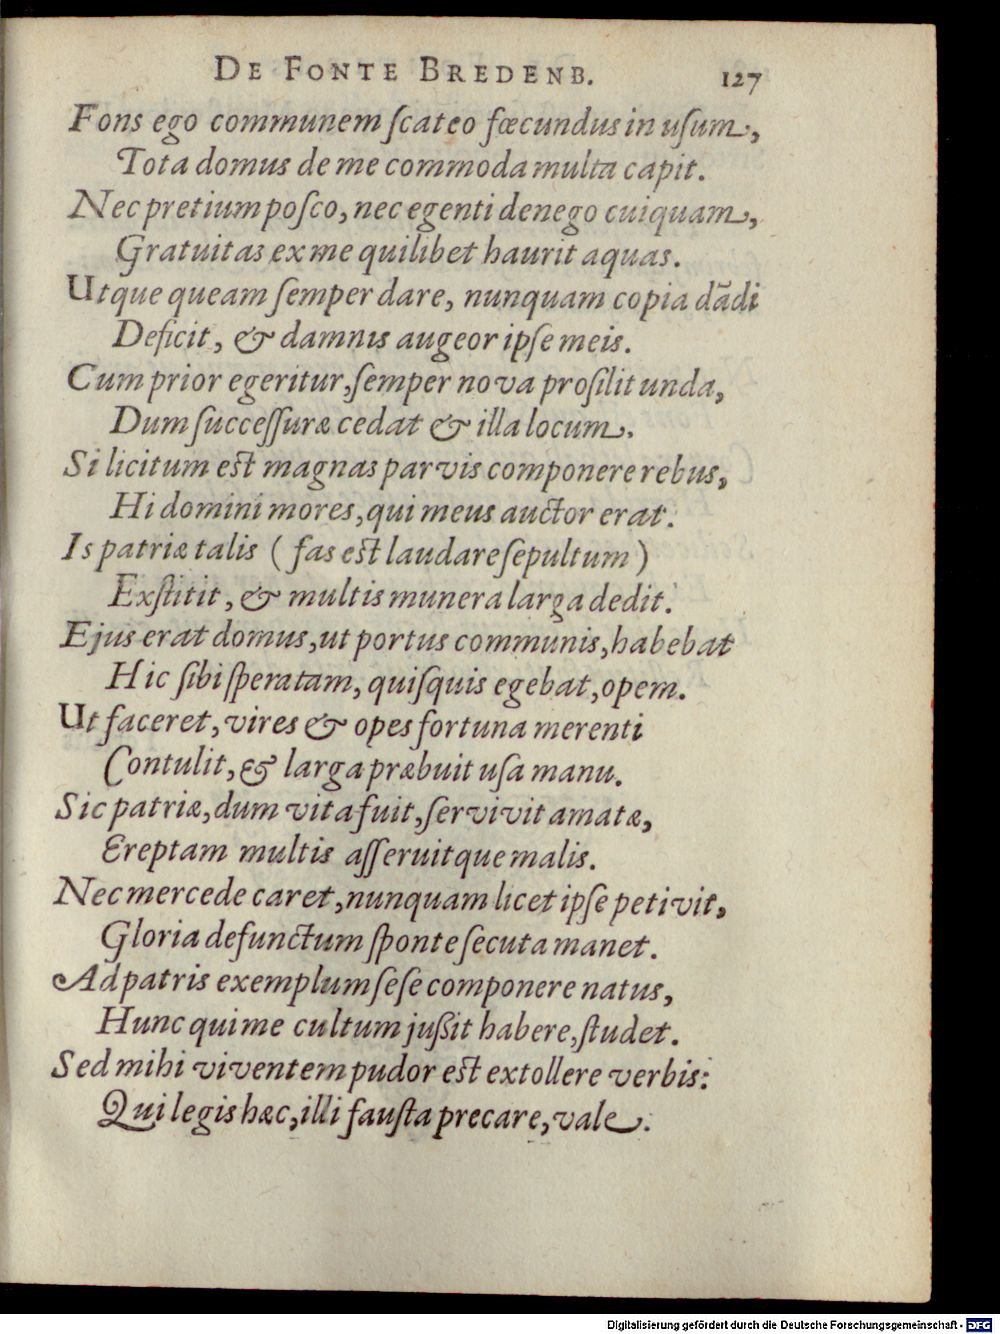 DE FONTE BREDENB. 127
Fons ego communem ſcateo fœcundus in uſum,
Tota domus de me commoda multa capit.
Nec pretium poſco, nec egenti denego cuiquam,
Gratuitas ex me quilibet haurit aquas.
Utque queam ſemper dare, nunquam copia dādi
Deficit, & damnis augeor ipſe meis.
Cum prior egeritur, ſemper nova proſilit unda,
Dum ſucceſſuræ cedat & illa locum.
Si licitum est magnas parvis componere rebus,
Hi domini mores, qui meus auctor erat.
Is patriæ talis ( fas est laudare ſepultum )
Exſtitit, & multis munera larga dedit.
Ejus erat domus, ut portus communis, habebat
Hic ſibi ſperatam, quiſquis egebat, opem.
Ut faceret, vires & opes fortuna merenti
Contulit, & larga præbuit uſa manu.
Sic patriæ, dum vita fuit, ſervivit amatæ,
Ereptam multis aſſeruitque malis.
Nec mercede caret, nunquam licet ipſe petivit,
Gloria defunctum ſponte ſecuta manet.
Ad patris exemplum ſeſe componere natus,
Hunc qui me cultum jußit habere, ſtudet.
Sed mihi viventem pudor est extollere verbis:
Qui legis hæc, illi fauſta precare, vale.
Digitalisierung gefördert durch die Deutsche Forschungsgemeinschaft - DFG